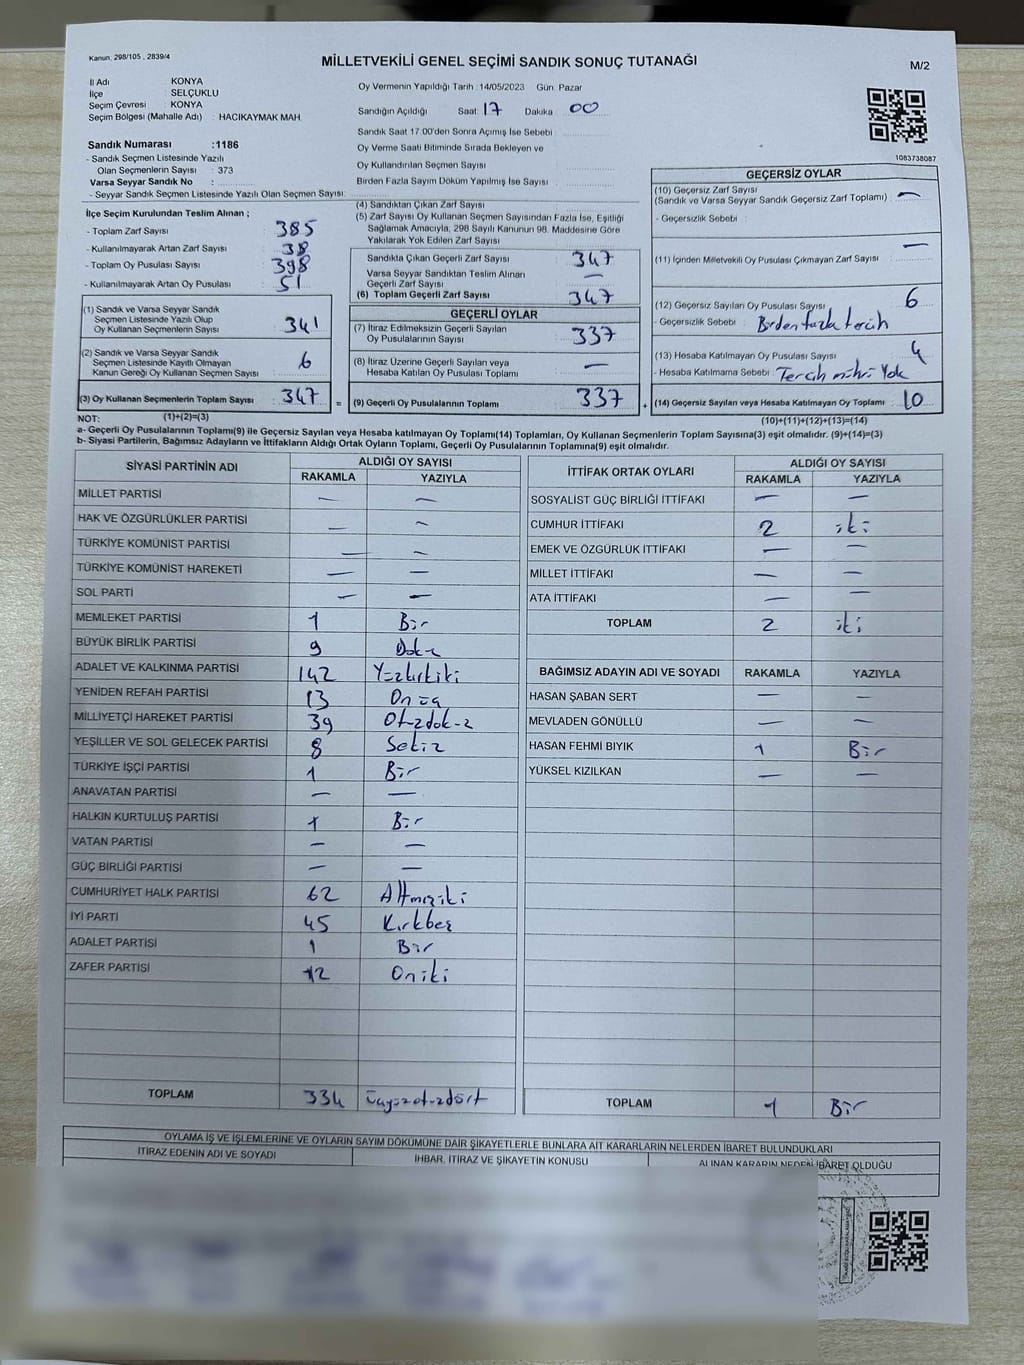 Kanun, 298/105 , 2839/4
MİLLETVEKİLİ GENEL SEÇİMİ SANDIK SONUÇ TUTANAĞI
M/2
İl Adı KONYA
İlçe SELÇUKLU
Seçim Çevresi : KONYA
Seçim Bölgesi (Mahalle Adı) : HACIKAYMAK MAH.
Sandık Numarası :1186
- Sandık Seçmen Listesinde Yazılı
Olan Seçmenlerin Sayısı : 373
Varsa Seyyar Sandık No :
- Seyyar Sandık Seçmen Listesinde Yazılı Olan Seçmen Sayısı:
Oy Vermenin Yapıldığı Tarih :14/05/2023 Gün: Pazar
Sandığın Açıldığı Saat: 17 Dakika : 00
Sandık Saat 17.00'den Sonra Açımış İse Sebebi :
Oy Verme Saati Bitiminde Sırada Bekleyen ve
Oy Kullandırılan Seçmen Sayısı
Birden Fazla Sayım Döküm Yapılmış İse Sayısı :
1083738087
İlçe Seçim Kurulundan Teslim Alınan ;
- Toplam Zarf Sayısı : 385
- Kullanılmayarak Artan Zarf Sayısı : 38
- Toplam Oy Pusulası Sayısı : 398
- Kullanılmayarak Artan Oy Pusulası : 51
(1) Sandık ve Varsa Seyyar Sandık
Seçmen Listesinde Yazılı Olup
Oy Kullanan Seçmenlerin Sayısı : 341
(2) Sandık ve Varsa Seyyar Sandık
Seçmen Listesinde Kayıtlı Olmayan
Kanun Gereği Oy Kullanan Seçmen Sayısı : 6
(3) Oy Kullanan Seçmenlerin Toplam Sayısı : 347
(1)+(2)=(3)
(4) Sandıktan Çıkan Zarf Sayısı :
(5) Zarf Sayısı Oy Kullanan Seçmen Sayısından Fazla İse, Eşitliği
Sağlamak Amacıyla, 298 Sayılı Kanunun 98. Maddesine Göre
Yakılarak Yok Edilen Zarf Sayısı :
Sandıkta Çıkan Geçerli Zarf Sayısı : 347
Varsa Seyyar Sandıktan Teslim Alınan
Geçerli Zarf Sayısı : —
(6) Toplam Geçerli Zarf Sayısı : 347
GEÇERLİ OYLAR
(7) İtiraz Edilmeksizin Geçerli Sayılan
Oy Pusulalarının Sayısı : 337
(8) İtiraz Üzerine Geçerli Sayılan veya
Hesaba Katılan Oy Pusulası Toplamı : —
= (9) Geçerli Oy Pusulalarının Toplamı : 337
GEÇERSİZ OYLAR
(10) Geçersiz Zarf Sayısı
(Sandık ve Varsa Seyyar Sandık Geçersiz Zarf Toplamı) : —
- Geçersizlik Sebebi :
(11) İçinden Milletvekili Oy Pusulası Çıkmayan Zarf Sayısı : —
(12) Geçersiz Sayılan Oy Pusulası Sayısı : 6
- Geçersizlik Sebebi : Birden fazla tercih
(13) Hesaba Katılmayan Oy Pusulası Sayısı : 4
- Hesaba Katılmama Sebebi : Tercih mührü Yok
+ (14) Geçersiz Sayılan veya Hesaba Katılmayan Oy Toplamı : 10
(10)+(11)+(12)+(13)=(14)
NOT:
a- Geçerli Oy Pusulalarının Toplamı(9) ile Geçersiz Sayılan veya Hesaba katılmayan Oy Toplamı(14) Toplamları, Oy Kullanan Seçmenlerin Toplam Sayısına(3) eşit olmalıdır. (9)+(14)=(3)
b- Siyasi Partilerin, Bağımsız Adayların ve İttifakların Aldığı Ortak Oyların Toplamı, Geçerli Oy Pusulalarının Toplamına(9) eşit olmalıdır.
SİYASİ PARTİNİN ADI ALDIĞI OY SAYISI
RAKAMLA YAZIYLA
MİLLET PARTİSİ — —
HAK VE ÖZGÜRLÜKLER PARTİSİ — —
TÜRKİYE KOMÜNİST PARTİSİ — —
TÜRKİYE KOMÜNİST HAREKETİ — —
SOL PARTİ — —
MEMLEKET PARTİSİ 1 Bir
BÜYÜK BİRLİK PARTİSİ 9 Dokuz
ADALET VE KALKINMA PARTİSİ 142 Yüzkırkiki
YENİDEN REFAH PARTİSİ 13 Onüç
MİLLİYETÇİ HAREKET PARTİSİ 39 Otuzdokuz
YEŞİLLER VE SOL GELECEK PARTİSİ 8 Sekiz
TÜRKİYE İŞÇİ PARTİSİ 1 Bir
ANAVATAN PARTİSİ — —
HALKIN KURTULUŞ PARTİSİ 1 Bir
VATAN PARTİSİ — —
GÜÇ BİRLİĞİ PARTİSİ — —
CUMHURİYET HALK PARTİSİ 62 Altmışiki
İYİ PARTİ 45 Kırkbeş
ADALET PARTİSİ 1 Bir
ZAFER PARTİSİ 12 Oniki
TOPLAM 334 üçyüzotuzdört
İTTİFAK ORTAK OYLARI ALDIĞI OY SAYISI
RAKAMLA YAZIYLA
SOSYALİST GÜÇ BİRLİĞİ İTTİFAKI — —
CUMHUR İTTİFAKI 2 iki
EMEK VE ÖZGÜRLÜK İTTİFAKI — —
MİLLET İTTİFAKI — —
ATA İTTİFAKI — —
TOPLAM 2 iki
BAĞIMSIZ ADAYIN ADI VE SOYADI RAKAMLA YAZIYLA
HASAN ŞABAN SERT — —
MEVLADEN GÖNÜLLÜ — —
HASAN FEHMİ BIYIK 1 Bir
YÜKSEL KIZILKAN — —
TOPLAM 1 Bir
OYLAMA İŞ VE İŞLEMLERİNE VE OYLARIN SAYIM DÖKÜMÜNE DAİR ŞİKAYETLERLE BUNLARA AİT KARARLARIN NELERDEN İBARET BULUNDUKLARI
İTİRAZ EDENİN ADI VE SOYADI İHBAR, İTİRAZ VE ŞİKAYETİN KONUSU ALINAN KARARIN NEDEN İBARET OLDUĞU